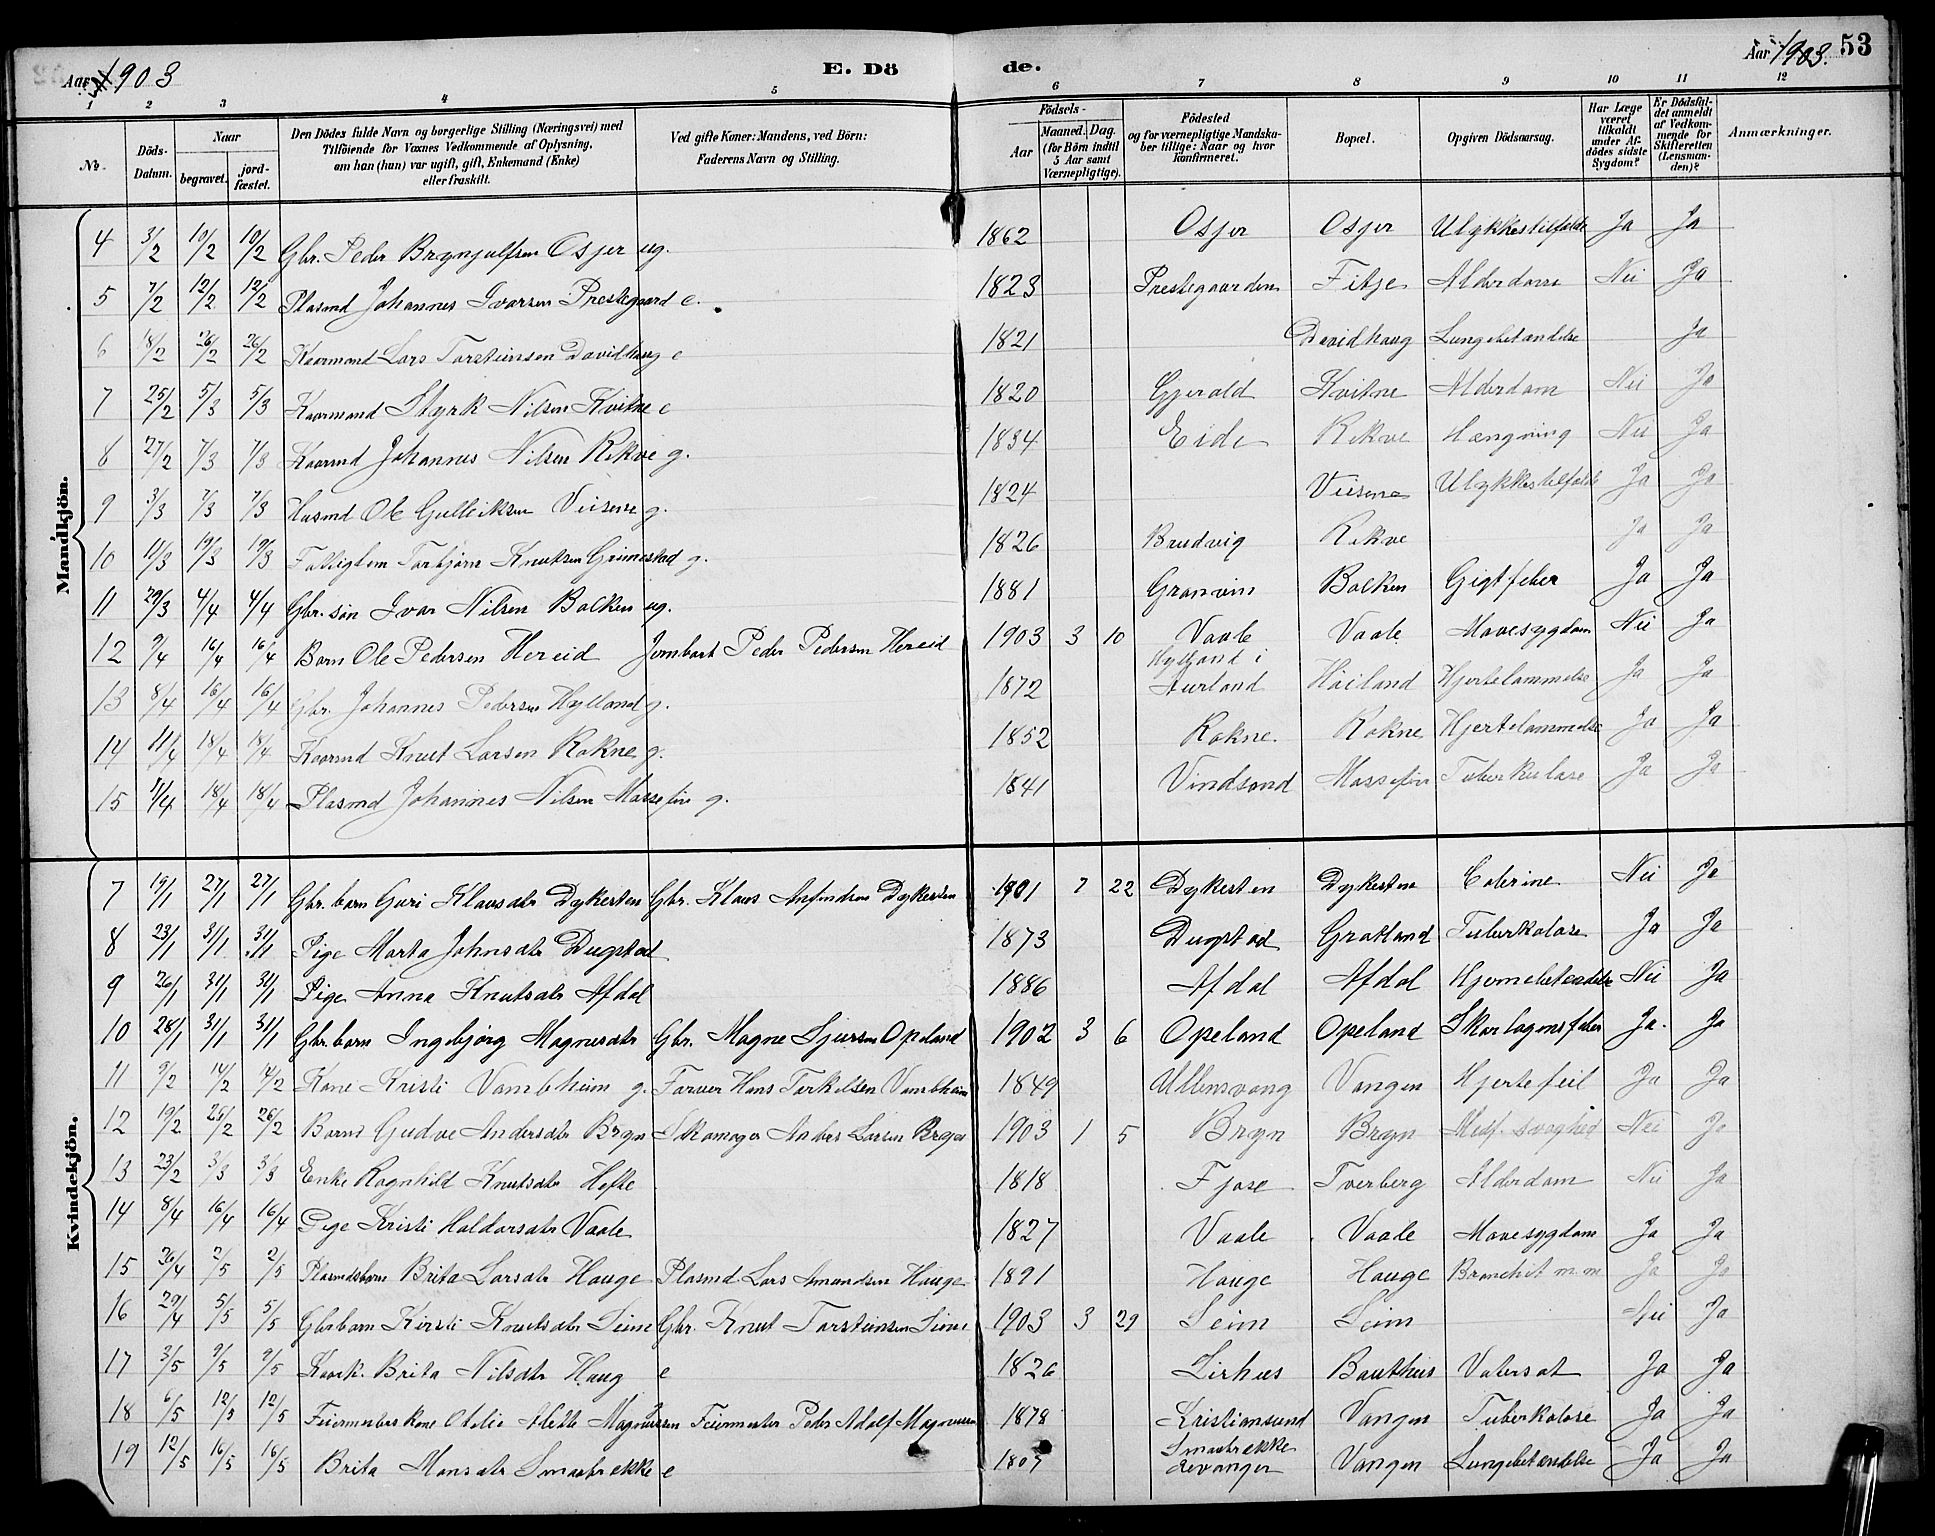 Aar 1903
E. Dö de.
Aar 1903. 53
1 2 3 4 5 6 7 8 9 10 11 12
No. Döds-Datum. Naar begravet. jord-fæstet. Den Dödes fulde Navn og borgerlige Stilling (Næringsvei) med Tilföiende for Voxnes Vedkommende af Oplysning, om han (hun) var ugift, gift, Enkemand (Enke) eller fraskilt. Ved gifte Koner: Mandens, ved Börn: Faderens Navn og Stilling. Födsels- Aar Maaned. Dag. (for Börn indtil 5 Aar samt Værnepligtige). Födested og for værnepligtige Mandskaber tillige: Naar og hvor konfirmeret. Bopæl. Opgiven Dödsaarsag. Har Læge været tilkaldt under Afdödes sidste Sygdom? Er Dödsfaldet anmeldt af Vedkommende for Skifteretten (Lensmanden)? Anmærkninger.
Mandkjön.
4 3/2 10/2 10/2 Gbr. Peder Brynjulfsen Osjer ug. 1862 Osjer Osjer Ulykkestilfælde Ja Ja
5 7/2 12/2 12/2 Plasmd Johannes Ivarsen Prestegaard e. 1823 Prestegaarden Fitje Alderdom Nei Ja
6 18/2 26/2 26/2 Kaarmand Lars Torsteinsen Davidhaug e 1821 Davidhaug Lungebetændelse Ja
7 25/2 5/3 5/3 Kaarmand Styrk Nilsen Kvitne e 1820 Gjerald Kvitne Alderdom Nei Ja
8 27/2 7/3 7/3 Kaarmd Johannes Nilsen Rekve g. 1834 Eide Rekve Hængning Nei Ja
9 3/3 7/3 7/3 Husmd Ole Gulleiksen Veisene g. 1824 Veisene Ulykkestilfælde Ja Ja
10 11/3 19/3 19/3 Fattiglem Torbjørn Knutsen Grimestad g. 1826 Brudvig Rekve Ja Ja
11 29/3 4/4 4/4 Gbr. søn Ivar Nilsen Bolken ug. 1881 Granvin Bolken Gigtfeber Ja Ja
12 9/4 16/4 16/4 Barn Ole Pedersen Hereid Jernbart Peder Pedersen Hereid 1903 3 10 Vaale Vaale Mavesygdom Nei Ja
13 8/4 16/4 16/4 Gbr. Johannes Pedersen Hylland g. 1872 Hylland i Aurland Høiland Hjertelammelse Ja Ja
14 11/4 18/4 18/4 Kaarmd Knut Larsen Rokne g. 1852 Rokne. Rokne Hjertelammelse Ja Ja
15 11/4 18/4 18/4 Plasmd Johannes Nilsen Mossefin g. 1841 Vindsand Mossefin Tuberkulose Ja Ja
Kvindekjön.
7 19/1 27/1 27/1 Gbr. barn Guri Klausdtr Dykesten Gbr. Klaus Anfindsen Dykesten 1901 7 22 Dykesten Dykesten Colerine Nei Ja
8 23/1 31/1 31/1 Pige Marta Johnsdtr Dugstad 1873 Dugstad Grotland Tuberkolose Ja Ja
9 26/1 31/1 31/1 Pige Anna Knutsdtr Afdal 1886 Afdal Afdal Hjernebetændelse Nei Ja
10 28/1 31/1 31/1 Gbr. barn Ingebjørg Magnesdtr Gbr. Magne Sjursen Opeland 1902 3 6 Opeland Opeland Skarlagensfeber Ja. Ja
11 9/2 14/2 14/2 Kone Kristi Vambheim g. Farver Hans Terkelsen Vambheim 1849 Ullensvang Vangen Hjertefeil Ja Ja
12 19/2 25/2 26/2 Barn Gudve Andersdtr Bryn Skomager Anders Larsen Bryn 1903 1 5 Bryn Bryn Medf. svaghed Nei Ja
13 23/2 3/3 3/3 Enke Ragnhild Knutsdtr Hefte 1818 Fjose Tverberg Alderdom Nei Ja
14 8/4 16/4 16/4 Pige Kristi Haldorsdtr Vaale 1827 Vaale Vaale Mavesygdom Ja Ja
15 26/4 2/5 2/5 Plasmdsbarn Brita Larsdtr Hauge Plasmd. Lars Amundsen Hauge 1891 Hauge Hauge Bronchit m.m Ja Ja
16 29/4 5/5 5/5 Gbrbarn Kirsti Knutsdtr Seim Gbr. Knut Torsteinsen Seim 1903 3 29 Seim Seim Nei Ja
17 3/5 9/5 9/5 Kaark. Brita Nilsdtr Haug e 1826 Lirhus Bauthus Vatersot Ja Ja
18 6/5 12/5 12/5 Feiermesters kone Otelie Mette Magnussen Feiermester Peder Adolf Magnussen 1878 Kristiansund Vangen Tuberkolose Ja Ja
19 12/5 16/5 16/5 Brita Monsdtr Smaabrekke e Smaabrekke Levanger Vangen Lungebetændelse Ja Ja